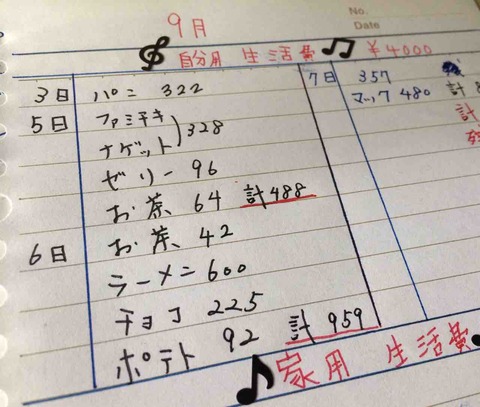 No.
Date
9月
自分用 生活費 ¥4000
3日 パン 322
5日 ファミチキ
ナゲット 328
ゼリー 96
お茶 64 計488
6日 お茶 42
ラーメン 600
チョコ 225
ポテト 92 計 959
7日 357
マック 480 計
計
家用 生活費